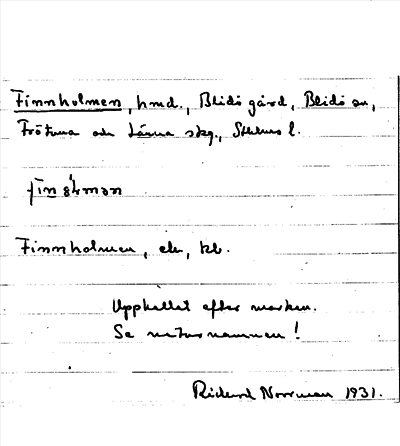 Finnholmen, hmd., Blidö gård, Blidö sn,
Frötuna och Länna skg., Sthlms l.
Finnholmen, ek, kb.
Uppkallat efter marken.
Se naturnamnen!
Rickard Norrman 1931.